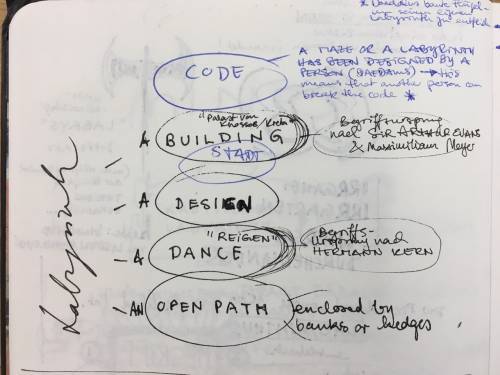 * Daedalus baute Flügel
um seinem eigenen
Labyrinth zu entfl
CODE
A MAZE OR A LABYRINTH
HAS BEEN DESIGNED BY A
PERSON (DAEDALUS) → this
means that another person can
break the code *
Labyrinth
"Palast von
Knossos/Kreta"
– A BUILDING
Begriffsursprung
nach SIR ARTHUR EVANS
& Maximilian Meyer
STADT
– A DESIGN
"REIGEN"
– A DANCE
Begriffs-
Ursprung nach
HERMANN KERN
– AN OPEN PATH
enclosed by
banks or hedges